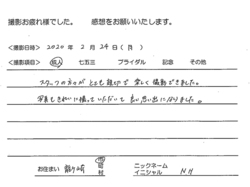 撮影お疲れ様でした。 感想をお願いいたします。
<撮影日時> 2020 年 2 月 24 日 (月)
<撮影項目> 成人 七五三 ブライダル 記念 その他
スタッフの方々が とても 親切で 楽しく 撮影できました。
写真もきれいに撮っていただいて良い思い出になりました。
お住まい 龍ヶ崎 市 町 村 ニックネーム イニシャル N H